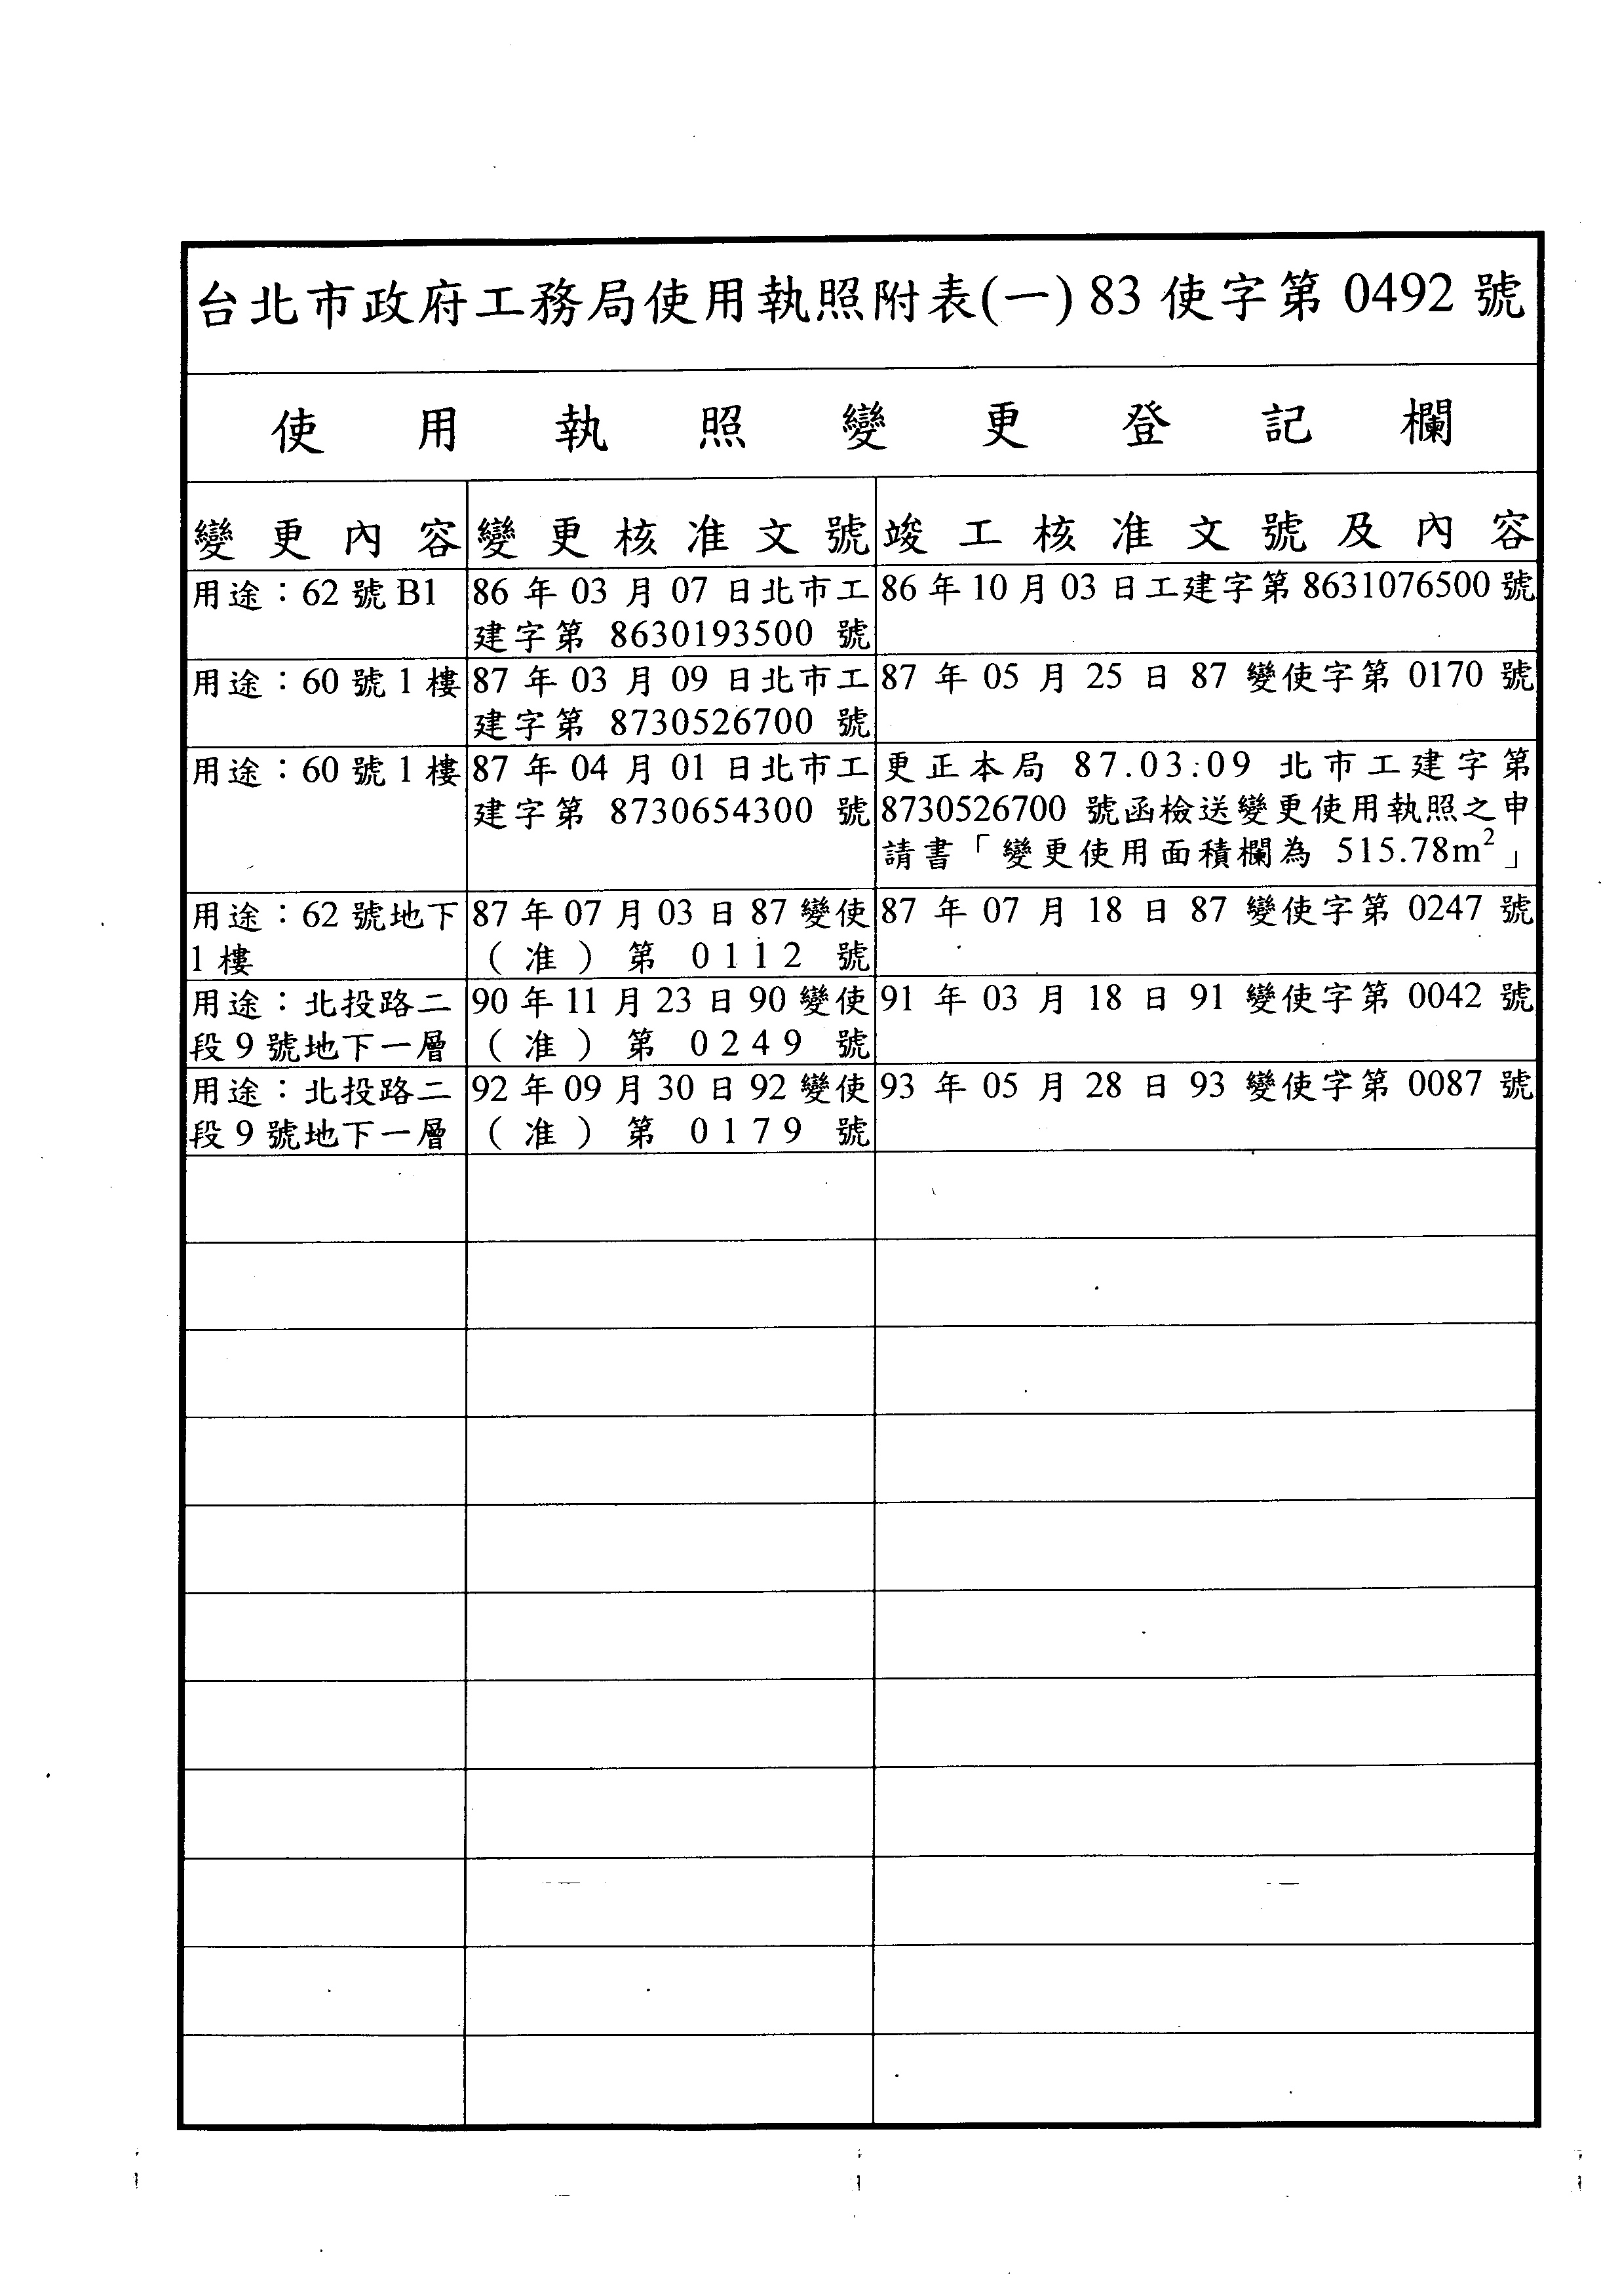 台北市政府工務局使用執照附表(一) 83 使字第 0492 號
使用執照變更登記欄
變更內容 變更核准文號 竣工核准文號及內容
用途：62 號 B1
86 年 03 月 07 日北市工
建字第 8630193500 號
86 年 10 月 03 日工建字第 8631076500 號
用途：60 號 1 樓
87 年 03 月 09 日北市工
建字第 8730526700 號
87 年 05 月 25 日 87 變使字第 0170 號
用途：60 號 1 樓
87 年 04 月 01 日北市工
建字第 8730654300 號
更正本局 87.03.09 北市工建字第
8730526700 號函檢送變更使用執照之申
請書「變更使用面積欄為 515.78m²」
用途：62 號地下
1 樓
87 年 07 月 03 日 87 變使
（准）第 0112 號
87 年 07 月 18 日 87 變使字第 0247 號
用途：北投路二
段 9 號地下一層
90 年 11 月 23 日 90 變使
（准）第 0249 號
91 年 03 月 18 日 91 變使字第 0042 號
用途：北投路二
段 9 號地下一層
92 年 09 月 30 日 92 變使
（准）第 0179 號
93 年 05 月 28 日 93 變使字第 0087 號